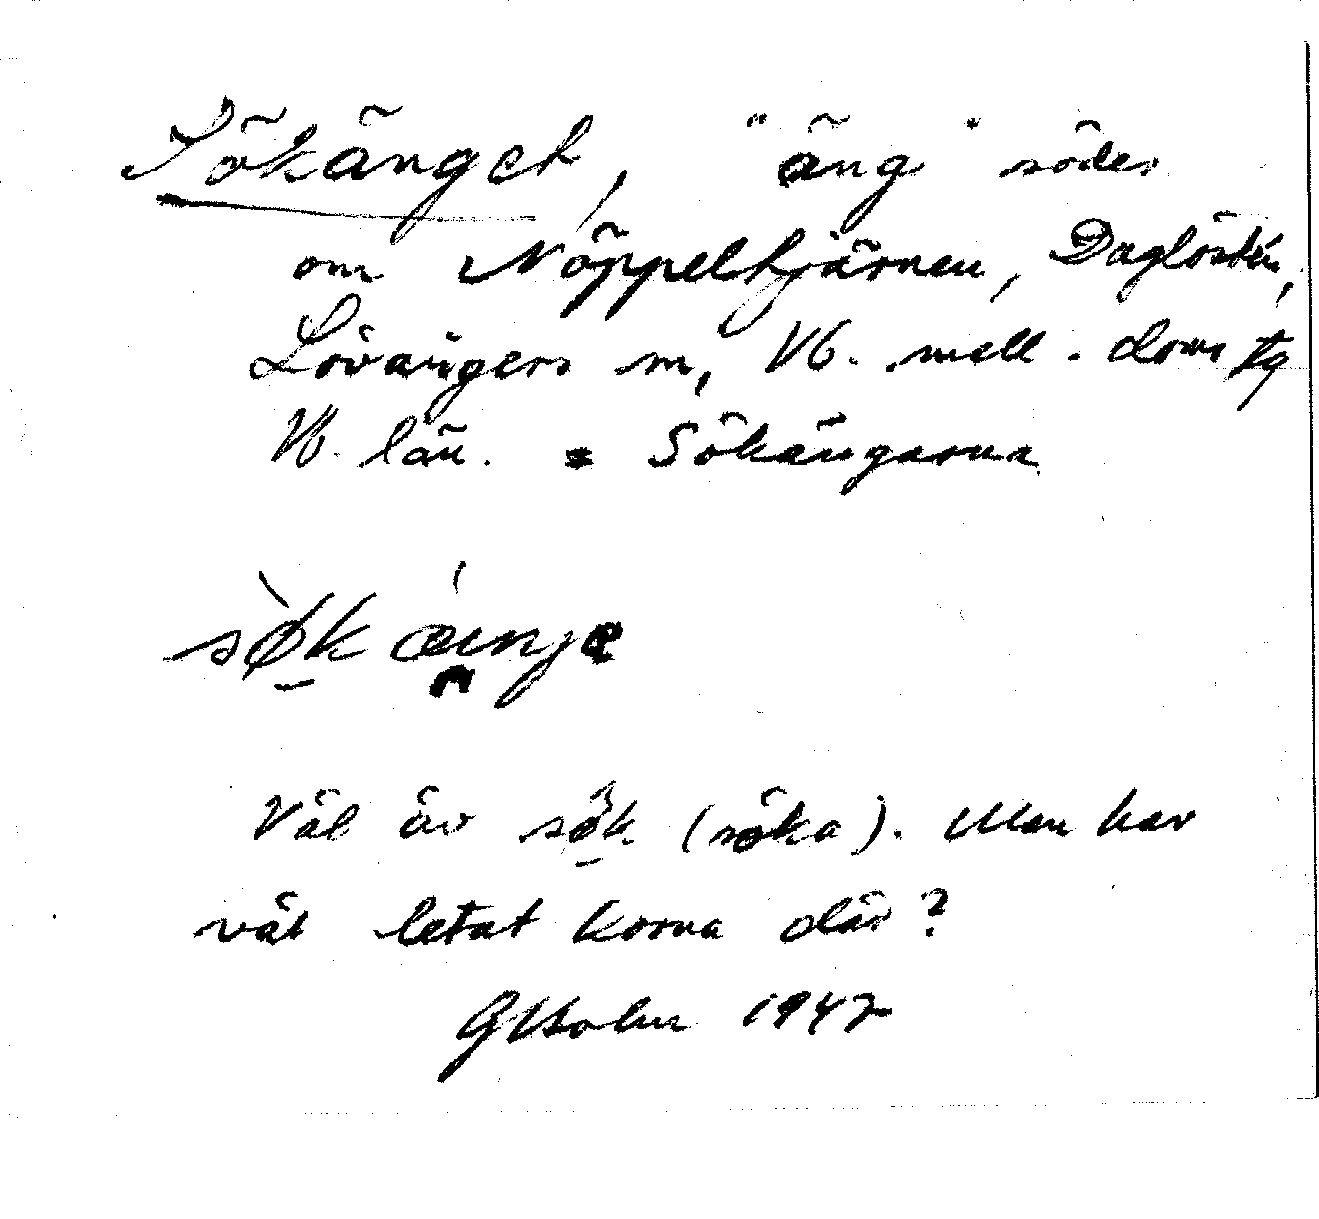 Sökänget, "äng" söder
om Näppeltjärnen, Daglösten,
Lövångers sn, Vb. mell. doms tg
Vb. län. = Sökängarna
søk æinje
Väl av søk (söka). Man har
väl letat korna där?
GHolm 1947